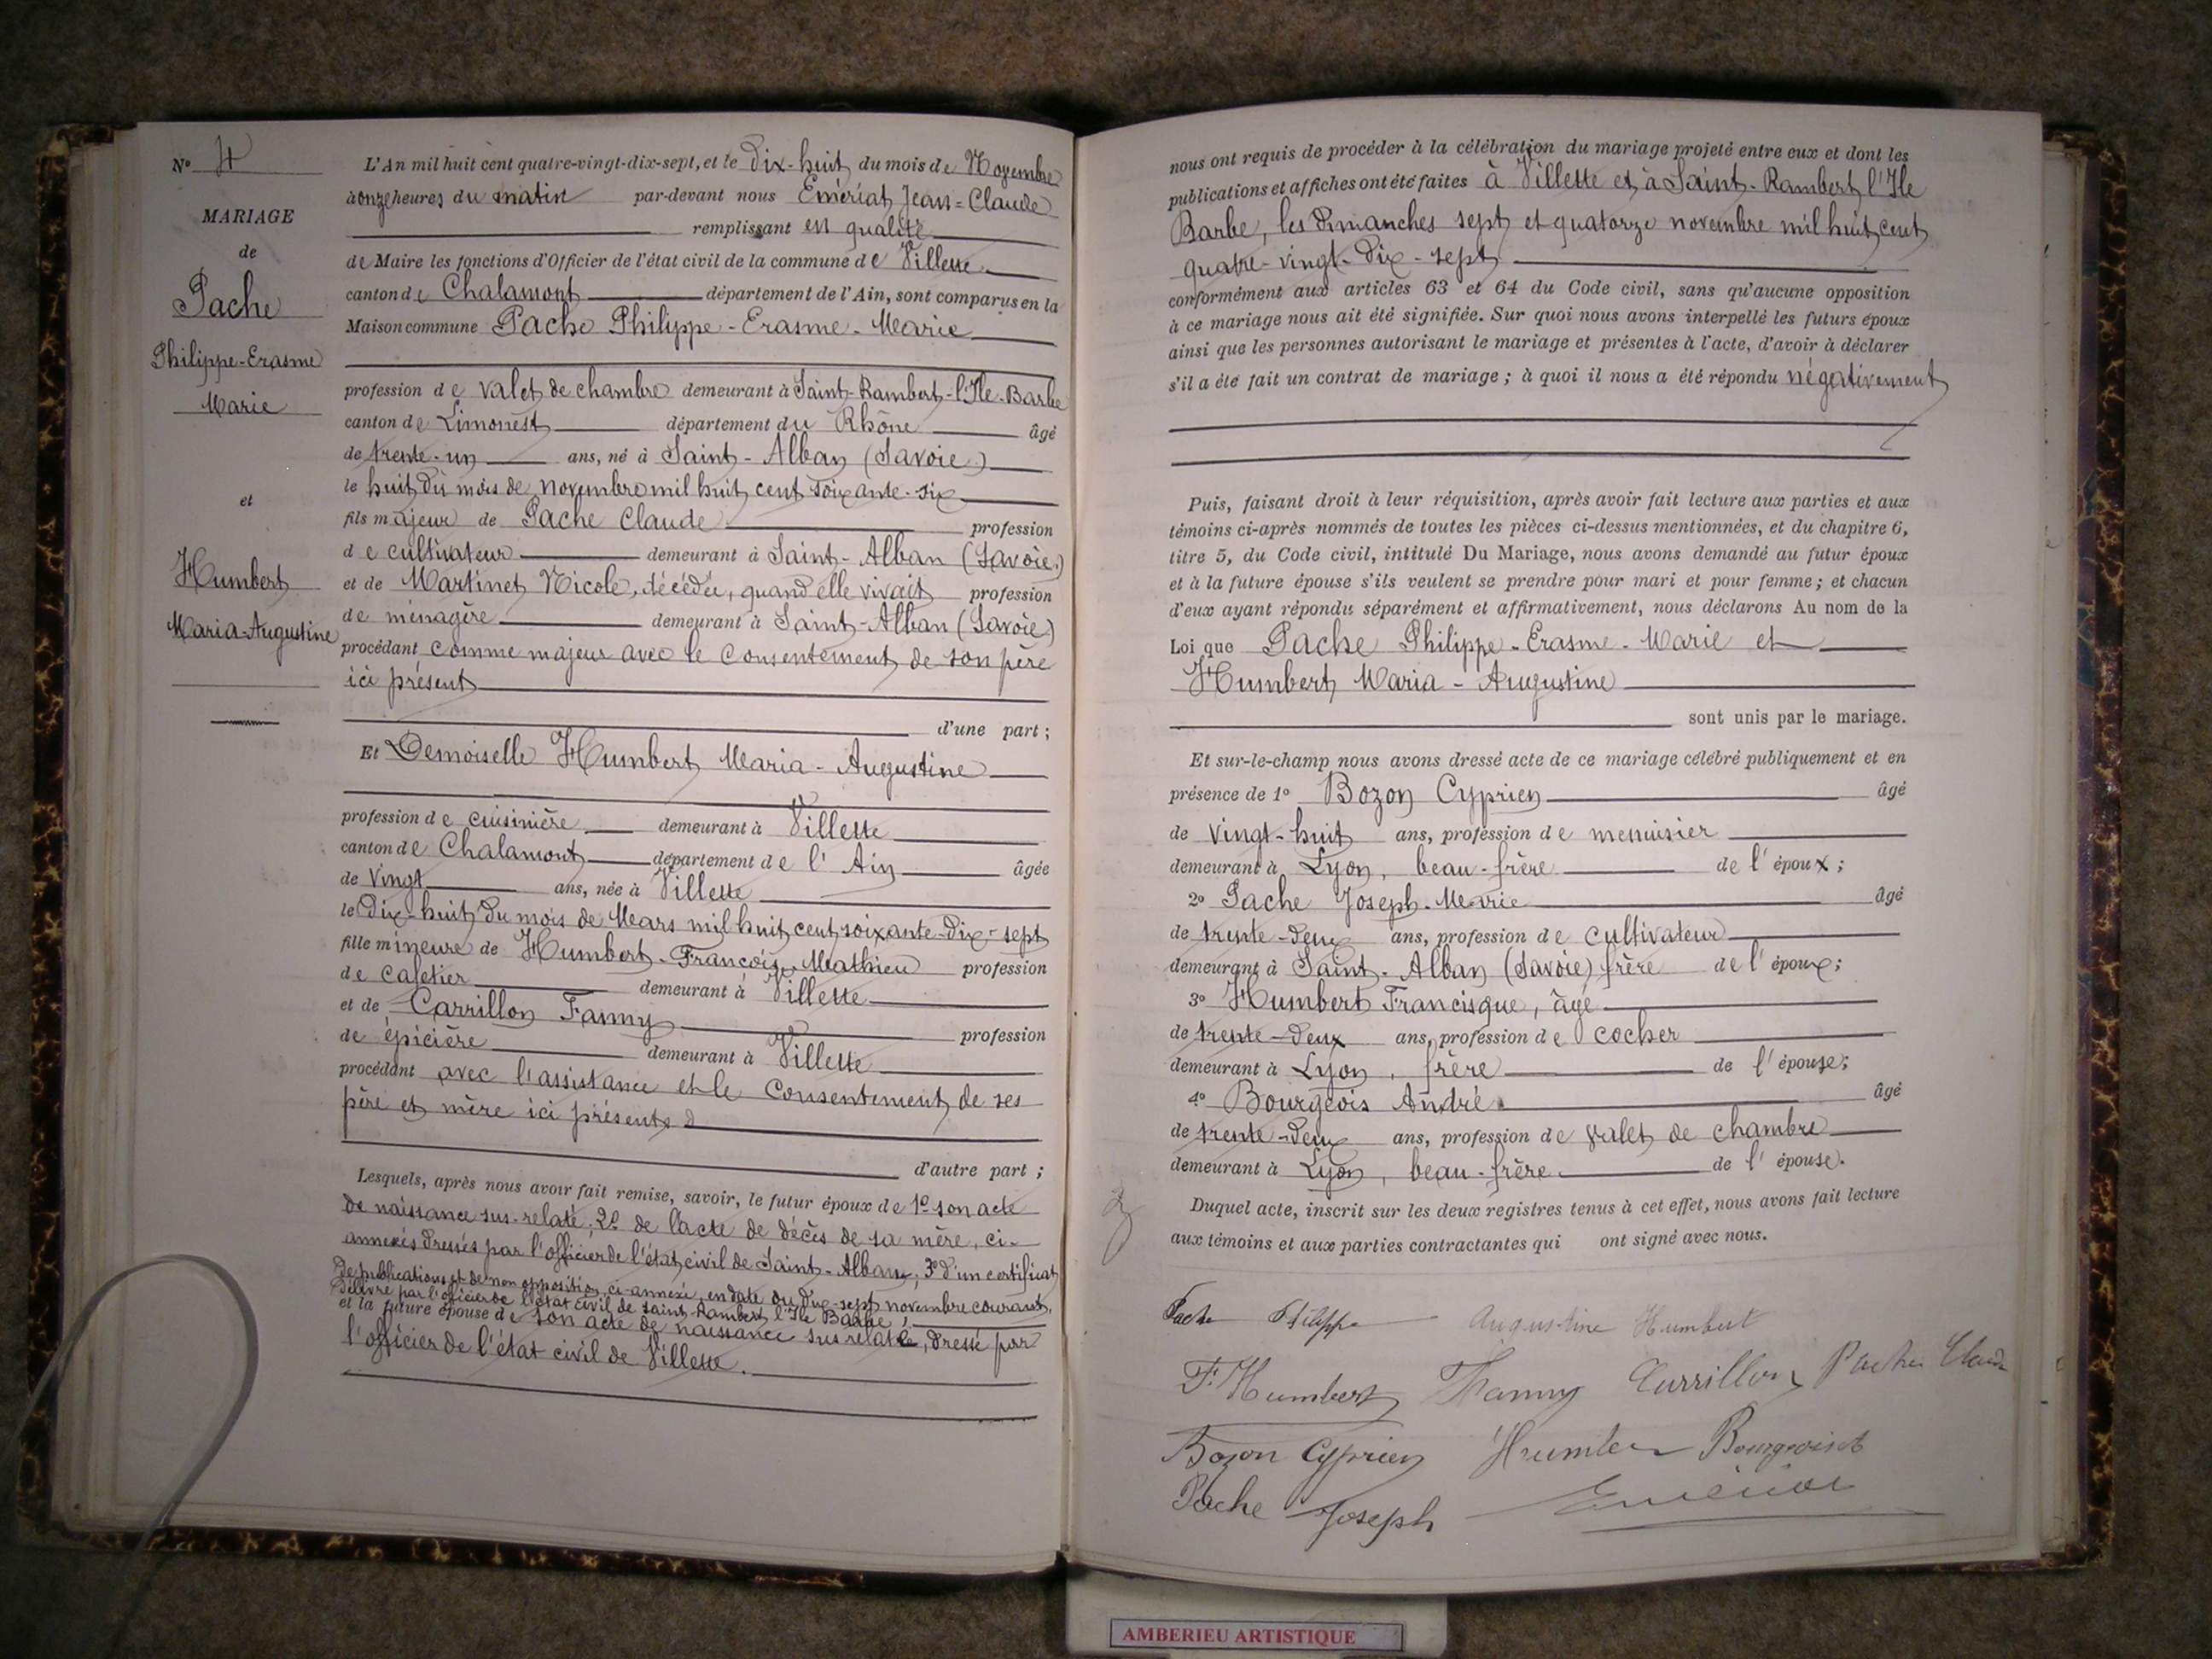 N° 4
MARIAGE
de
Pache
Philippe-Erasme
Marie
et
Humbert
Maria-Augustine
L'An mil huit cent quatre-vingt-dix-sept, et le dix-huit du mois de Novembre
à onze heures du matin par-devant nous Emériat Jean-Claude
remplissant en qualité
de Maire les fonctions d'Officier de l'état civil de la commune de Villette
canton de Chalamont département de l'Ain, sont comparus en la
Maison commune Pache Philippe-Erasme-Marie
profession de valet de chambre demeurant à Saint-Rambert-l'Ile-Barbe
canton de Limonest département du Rhône âgé
de trente-un ans, né à Saint-Alban (Savoie)
le huit du mois de novembre mil huit cent soixante-six
fils majeur de Pache Claude profession
de cultivateur demeurant à Saint-Alban (Savoie)
et de Martinet Nicole, décédée, quand elle vivait profession
de ménagère demeurant à Saint-Alban (Savoie)
procédant comme majeur avec le consentement de son père
ici présent
d'une part ;
Et Demoiselle Humbert Maria-Augustine
profession de cuisinière demeurant à Villette
canton de Chalamont département de l'Ain âgée
de vingt ans, née à Villette
le dix-huit du mois de Mars mil huit cent soixante-dix-sept
fille mineure de Humbert-François-Mathieu profession
de cafetier demeurant à Villette
et de Carrillon Fanny profession
de épicière demeurant à Villette
procédant avec l'assistance et le consentement de ses
père et mère ici présents
d'autre part ;
Lesquels, après nous avoir fait remise, savoir, le futur époux de 1° son acte
de naissance sus-relaté, 2° de l'acte de décès de sa mère, ci-
annexés dressés par l'officier de l'état civil de Saint-Alban, 3° d'un certificat
de publications et de non opposition ci-annexé, en date du dix-sept novembre courant,
délivré par l'officier de l'état civil de Saint-Rambert l'Ile Barbe ;
et la future épouse de son acte de naissance sus relaté, dressé par
l'officier de l'état civil de Villette.
nous ont requis de procéder à la célébration du mariage projeté entre eux et dont les
publications et affiches ont été faites à Villette et à Saint-Rambert l'Ile
Barbe, les dimanches sept et quatorze novembre mil huit cent
quatre-vingt-dix-sept
conformément aux articles 63 et 64 du Code civil, sans qu'aucune opposition
à ce mariage nous ait été signifiée. Sur quoi nous avons interpellé les futurs époux
ainsi que les personnes autorisant le mariage et présentes à l'acte, d'avoir à déclarer
s'il a été fait un contrat de mariage ; à quoi il nous a été répondu négativement
Puis, faisant droit à leur réquisition, après avoir fait lecture aux parties et aux
témoins ci-après nommés de toutes les pièces ci-dessus mentionnées, et du chapitre 6,
titre 5, du Code civil, intitulé Du Mariage, nous avons demandé au futur époux
et à la future épouse s'ils veulent se prendre pour mari et pour femme ; et chacun
d'eux ayant répondu séparément et affirmativement, nous déclarons Au nom de la
Loi que Pache Philippe-Erasme-Marie et
Humbert Maria-Augustine
sont unis par le mariage.
Et sur-le-champ nous avons dressé acte de ce mariage célébré publiquement et en
présence de 1° Bozon Cyprien âgé
de vingt-huit ans, profession de menuisier
demeurant à Lyon, beau-frère de l'époux ;
2° Pache Joseph-Marie âgé
de trente-deux ans, profession de cultivateur
demeurant à Saint-Alban (Savoie) frère de l'époux ;
3° Humbert Francisque, âgé
de trente-deux ans, profession de cocher
demeurant à Lyon, frère de l'épouse ;
4° Bourgeois André âgé
de trente-deux ans, profession de valet de chambre
demeurant à Lyon, beau-frère de l'épouse.
Duquel acte, inscrit sur les deux registres tenus à cet effet, nous avons fait lecture
aux témoins et aux parties contractantes qui ont signé avec nous.
Pache Philippe Augustine Humbert
F. Humbert Fanny Carrillon Pache Claude
Bozon Cyprien Humbert Bourgeois
Pache Joseph Emériat
AMBERIEU ARTISTIQUE